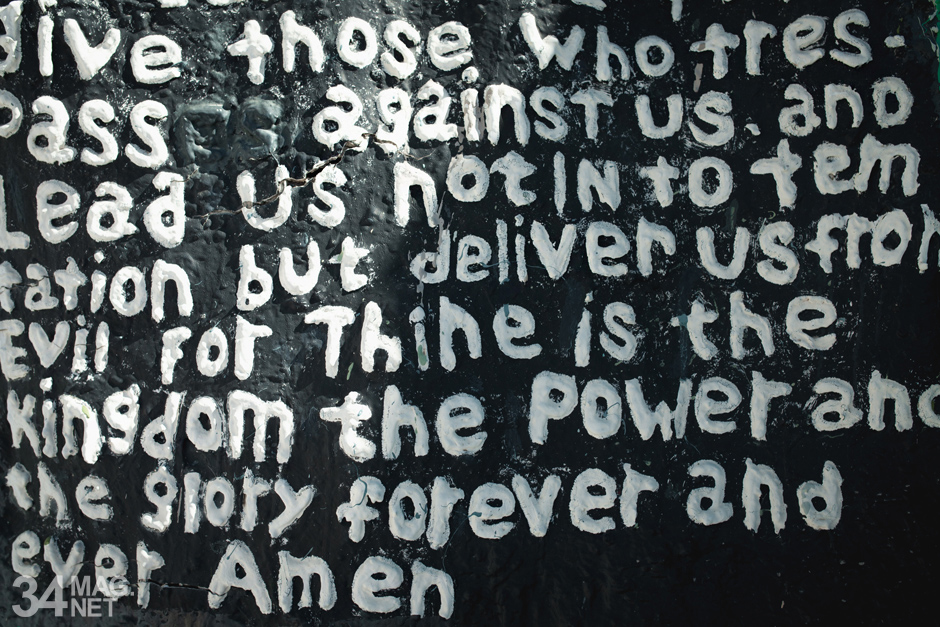 give those who tres-
pass against us. and
Lead us not IN to tem
tation but deliver us from
Evil for Thine is the
kingdom the Power and
the glory forever and
ever Amen
34 MAG.
NET